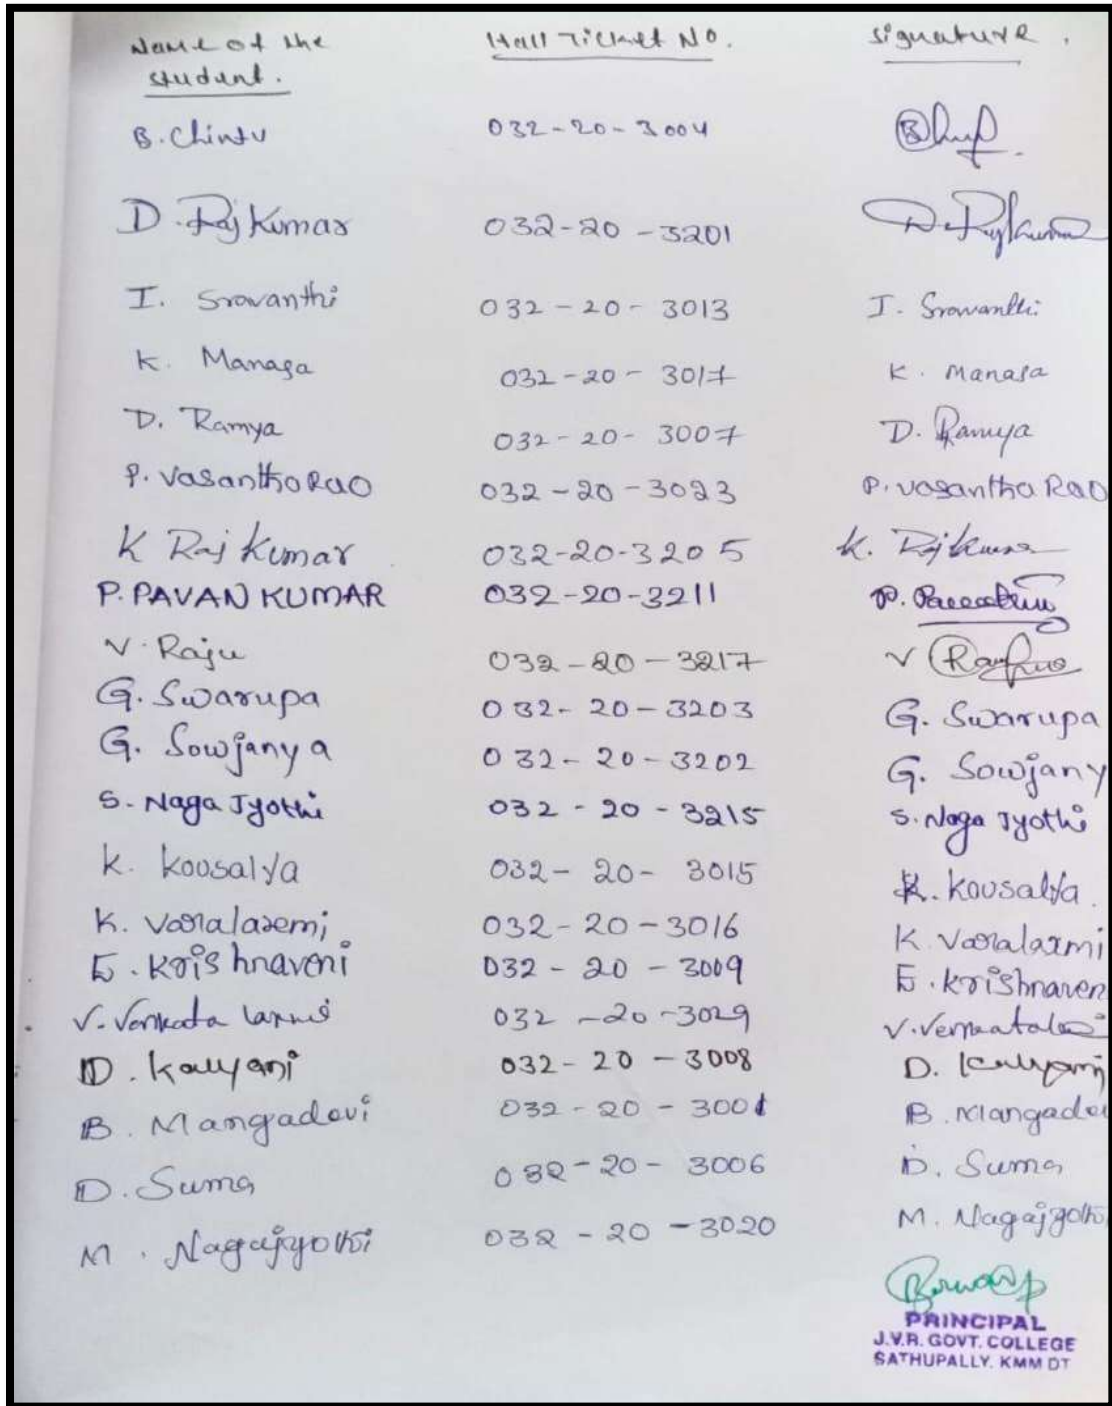 Name of the Hall Ticket No. Signature.
student.
B. Chintu 032-20-3004
D. Raj Kumar 032-20-3201 D. Rajkumar
I. Sravanthi 032-20-3013 I. Sravanthi
K. Manasa 032-20-3017 K. Manasa
D. Ramya 032-20-3007 D. Ramya
P. Vasantha Rao 032-20-3023 P. Vasantha Rao
K Raj Kumar 032-20-3205 K. Rajkumar
P. PAVAN KUMAR 032-20-3211 P.
V. Raju 032-20-3217 V
G. Swarupa 032-20-3203 G. Swarupa
G. Sowjanya 032-20-3202 G. Sowjany
S. Naga Jyothi 032-20-3215 S. Naga Jyothi
K. Kousalya 032-20-3015 K. Kousalya.
K. Varalaxmi 032-20-3016 K. Varalaxmi
E. Krishnaveni 032-20-3009 E. Krishnaven
V. Venkata Laxmi 032-20-3029
D. Kalyani 032-20-3008 D. Kalyani
B. Mangadevi 032-20-3001 B. Mangadev
D. Suma 032-20-3006 D. Suma
M. Nagajyothi 032-20-3020 M. Nagajyothi
PRINCIPAL
J.V.R. GOVT. COLLEGE
SATHUPALLY. KMM DT